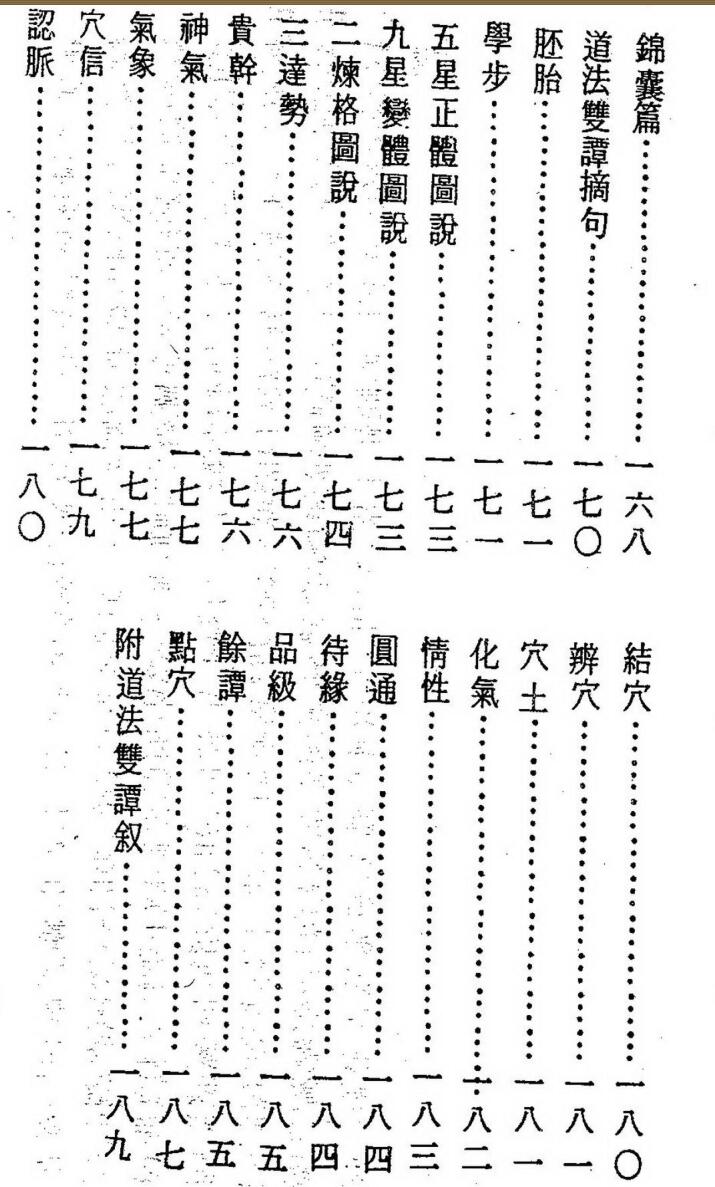 錦囊篇……一六八
道法雙譚摘句……一七〇
胚胎……一七一
學步……一七一
五星正體圖說……一七三
九星變體圖說……一七三
二煉格圖說……一七四
三達勢……一七六
貴幹……一七六
神氣……一七七
氣象……一七七
穴信……一七九
認脈……一八〇
結穴……一八〇
辨穴……一八一
穴土……一八一
化氣……一八二
情性……一八三
圓通……一八四
待緣……一八四
品級……一八五
餘譚……一八五
點穴……一八七
附道法雙譚叙……一八九